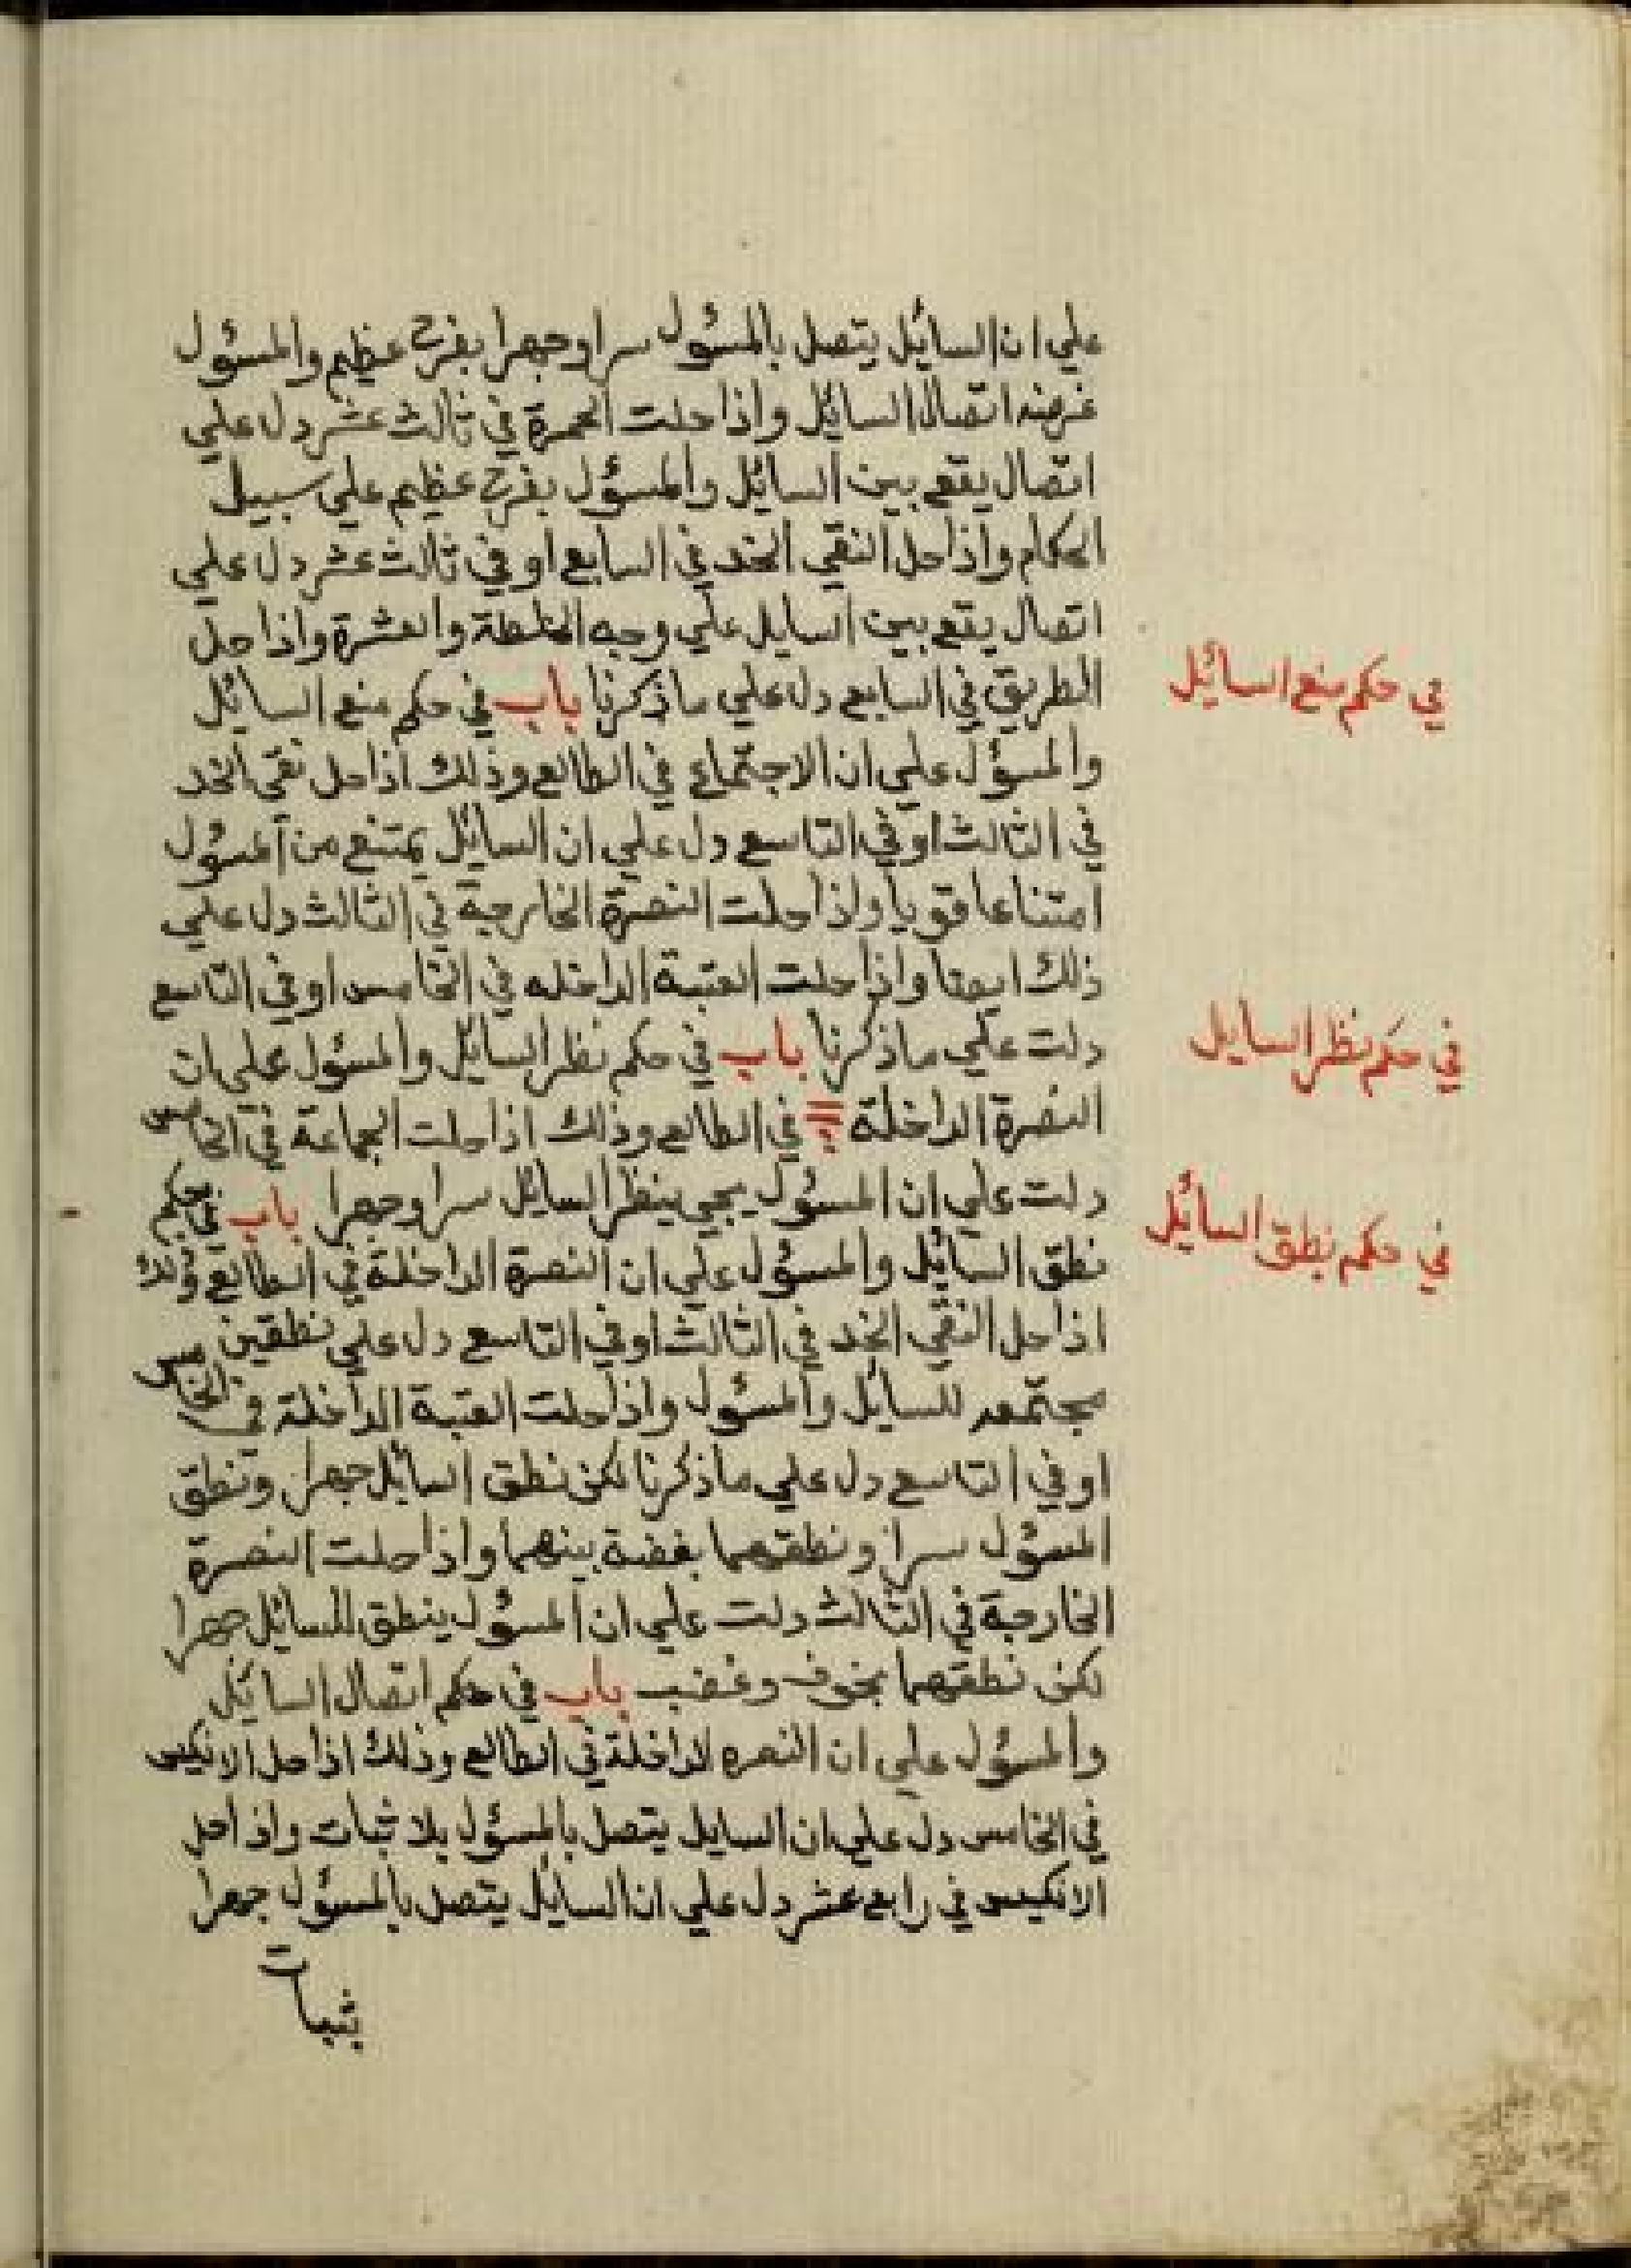 علي ان السائل يتصل بالمسؤل سرا وجهرا بفرح عظيم والمسؤل
غرضه اتصال السائل واذا حلت الحمرة في ثالث عشر دل علي
اتصال يقع بين السائل والمسؤل بفرح عظيم علي سبيل
الحكام واذا حل النقي الخد في السابع او في ثالث عشر دل علي
اتصال يقع بين السايل علي وجه الخلطة والعشرة واذا حل
الطريق في السابع دل علي ما ذكرنا باب في حكم منع السائل
في حكم منع السائل
والمسؤل علي ان الاجتماع في الطالع وذلك اذا حل نقي الخد
في الثالث او في التاسع دل علي ان السائل يمتنع من المسؤل
امتناعا قويا واذا حلت النصرة الخارجة في الثالث دل علي
ذلك ايضا واذا حلت العتبة الداخله في الخامس او في التاسع
دلت علي ما ذكرنا باب في حكم نظر السائل والمسؤل علي ان
في حكم نظر السايل
النصرة الداخلة في الطالع وذلك اذا حلت الجماعة في الخامس
دلت علي ان المسؤل يجي ينظر السائل سرا وجهرا باب في حكم
في حكم نطق السائل
نطق السائل والمسؤل علي ان النصرة الداخلة في الطالع وذلك
اذا حل النقي الخد في الثالث او في التاسع دل علي نطقين
مجتمعه للسائل والمسؤل واذا حلت العتبة الداخلة في الخامس
او في التاسع دل علي ما ذكرنا لكن نطق السائل جهرا ونطق
المسؤل سرا ونطقهما بغضة بينهما واذا حلت النصرة
الخارجة في الثالث دلت علي ان المسؤل ينطق للسائل جهرا
لكن نطقهما بخوف وغضب باب في حكم اتصال السائل
والمسؤل علي ان النصره الداخلة في الطالع وذلك اذا حل الانكيس
في الخامس دل علي ان السايل يتصل بالمسؤل بلا ثبات واذا حل
الانكيس في رابع عشر دل علي ان السائل يتصل بالمسؤل جهرا
ثبات